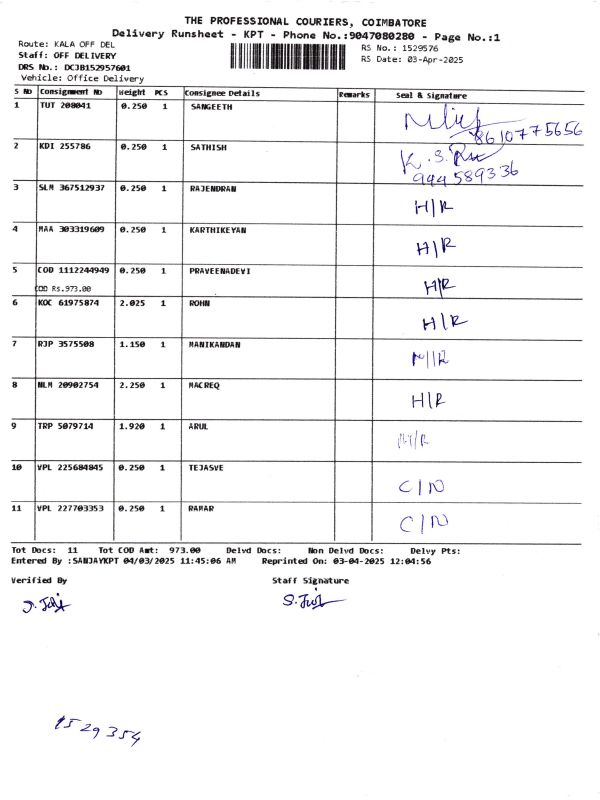 THE PROFESSIONAL COURIERS, COIMBATORE
Delivery Runsheet - KPT - Phone No.:9047080280 - Page No.:1
Route: KALA OFF DEL
RS No.: 1529576
Staff: OFF DELIVERY
RS Date: 03-Apr-2025
DRS No.: DCJB152957601
Vehicle: Office Delivery
S NO Consignment No Weight PCS Consignee Details Remarks Seal & Signature
1 TUT 208041 0.250 1 SANGEETH
8610775656
2 KDI 255786 0.250 1 SATHISH K.S.
944589336
3 SLM 367512937 0.250 1 RAJENDRAN H/R
4 MAA 303319609 0.250 1 KARTHIKEYAN H/R
5 COD 1112244949 0.250 1 PRAVEENADEVI H/R
COD Rs.973.00
6 KOC 61975874 2.025 1 ROHN H/R
7 RJP 3575508 1.150 1 MANIKANDAN
8 NLM 20902754 2.250 1 MACREQ H/R
9 TRP 5079714 1.920 1 ARUL
10 VPL 225684845 0.250 1 TEJASVE C/N
11 VPL 227703353 0.250 1 RAMAR C/N
Tot Docs: 11 Tot COD Amt: 973.00 Delvd Docs: Non Delvd Docs: Delvy Pts:
Entered By :SANJAYKPT 04/03/2025 11:45:06 AM Reprinted On: 03-04-2025 12:04:56
Verified By Staff Signature
1529354